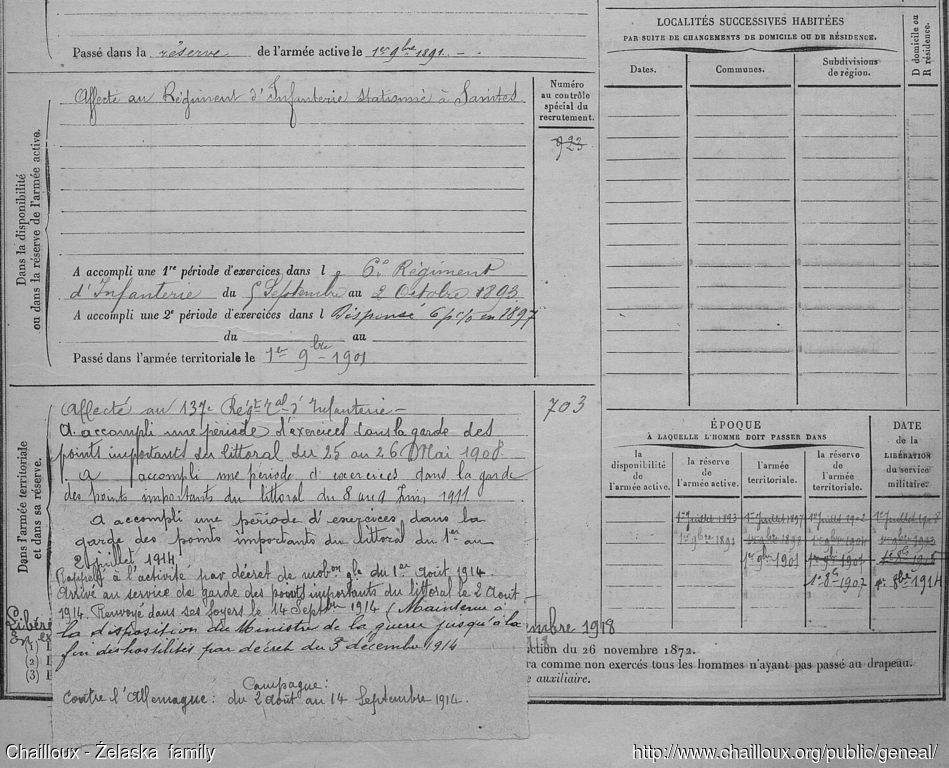 Passé dans la réserve de l'armée active le 1er 9bre 1891
Dans la disponibilité
ou dans la réserve de l'armée active.
Affecté au Régiment d'Infanterie stationné à Saintes.
Numéro
au contrôle
spécial du
recrutement.
923
A accompli une 1re période d'exercices dans l e 6e Régiment
d'Infanterie du 5 Septembre au 2 Octobre 1893.
A accompli une 2e période d'exercices dans l Dispensé en 1897
du au
Passé dans l'armée territoriale le 1er 9bre 1901
Dans l'armée territoriale
et dans sa réserve.
Affecté au 137e Régt Tal d'Infanterie
703
A accompli une période d'exercices dans la garde des
points importants du littoral du 25 au 26 Mai 1908.
A accompli une période d'exercices dans la garde
des points importants du littoral du 8 au 9 Juin 1911
A accompli une période d'exercices dans la
garde des points importants du littoral du 1er au
2 juillet 1914
Rappelé à l'activité par décret de mobon gle du 1er Août 1914
Arrivé au service de garde des points importants du littoral le 2 Août
1914. Renvoyé dans ses foyers le 14 Septbre 1914 (Maintenu à
la disposition du Ministre de la guerre jusqu'à la
fin des hostilités par décret du 3 décembre 1914
Campagne:
Contre l'Allemagne: du 2 Août au 14 Septembre 1914.
Libéré
(1)
(2)
(3)
embre 1918
ction du 26 novembre 1872.
ra comme non exercés tous les hommes n'ayant pas passé au drapeau.
e auxiliaire.
LOCALITÉS SUCCESSIVES HABITÉES
PAR SUITE DE CHANGEMENTS DE DOMICILE OU DE RÉSIDENCE.
Dates.
Communes.
Subdivisions
de région.
D domicile ou
R résidence.
ÉPOQUE
À LAQUELLE L'HOMME DOIT PASSER DANS
la
disponibilité
de
l'armée active.
la réserve
de
l'armée active.
l'armée
territoriale.
la réserve
de l'armée
territoriale.
DATE
de la
LIBÉRATION
du service
militaire.
1er Juillet 1893 1er Juillet 1897 1er Juillet 1902 1er Juillet 1908
1er 9bre 1891 1er 9bre 1898 1er 9bre 1904
1er 9bre 1901
1er 8bre 1907 1er 8bre 1914
Chailloux - Żelaska family
http://www.chailloux.org/public/geneal/